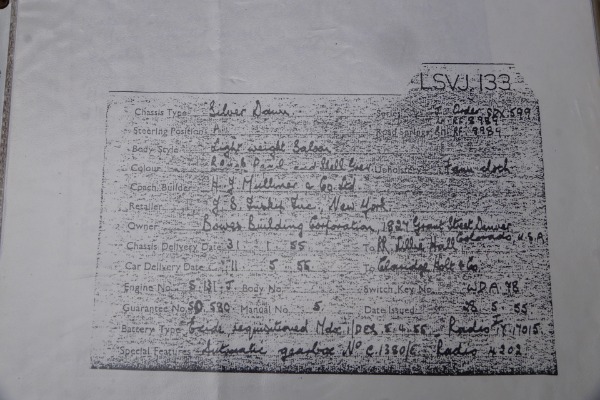 LSVJ.133
Chassis Type Silver Dawn To Order SPX.599
Steering Position To RF 8986
Road Springs RF 8984
Body Style Light weight Saloon
Colour and Upholstery Fawn cloth
Coach Builder H. J. Mulliner & Co. Ltd
Retailer J. S. Inskip Inc., New York
Owner Bowes Building Corporation, 1827 Grant Street Denver
Colorado, U.S.A.
Chassis Delivery Date 31 1 55 To Lillie Hall
Car Delivery Date 11 5 55 To Claridge Holt & Co.
Engine No. S.131.J Body No. Switch Key No. W.D.A. 78
Guarantee No. SD.530 Manual No. 5 Date Issued 5.55
Battery Type Exide requisitioned 5.4.55 - Radio FY.17015
Special Features Automatic gearbox No C.1380/E Radio 4202